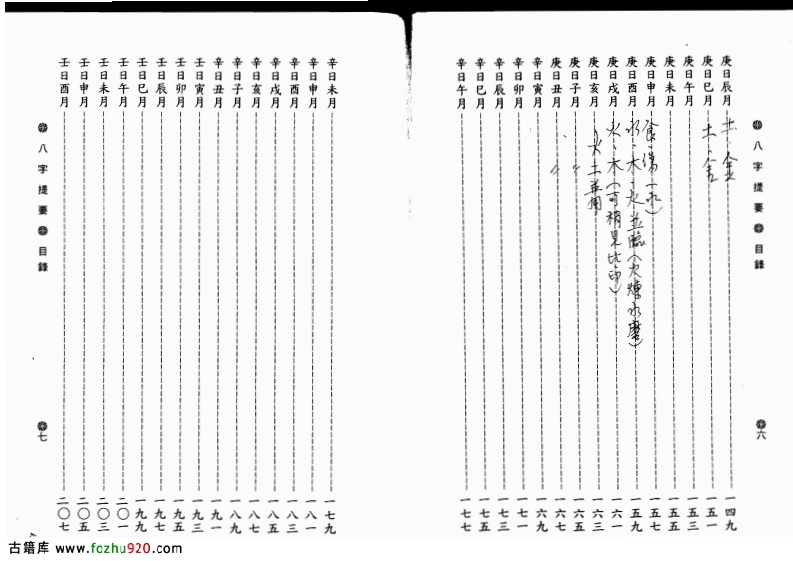 八字提要 目錄 六
庚日辰月 土、金 一四九
庚日巳月 土、金 一五一
庚日午月 一五三
庚日未月 一五五
庚日申月 食、傷（水） 一五七
庚日酉月 水、木、火並臨（火煉水磨） 一五九
庚日戌月 火、木（可稍見比印） 一六一
庚日亥月 火土並用 一六三
庚日子月 〃 一六五
庚日丑月 〃 一六七
辛日寅月 一六九
辛日卯月 一七一
辛日辰月 一七三
辛日巳月 一七五
辛日午月 一七七
辛日未月 一七九
辛日申月 一八一
辛日酉月 一八三
辛日戌月 一八五
辛日亥月 一八七
辛日子月 一八九
辛日丑月 一九一
壬日寅月 一九三
壬日卯月 一九五
壬日辰月 一九七
壬日巳月 一九九
壬日午月 二〇一
壬日未月 二〇三
壬日申月 二〇五
壬日酉月 二〇七
八字提要 目錄 七
古籍库 www.fozhu920.com